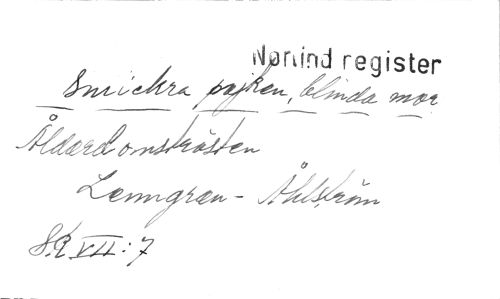 Norlind register
Smickra pojken, blinda mor
Ålderdomströsten
Lenngren - Åhlström
S.P. VII: 7